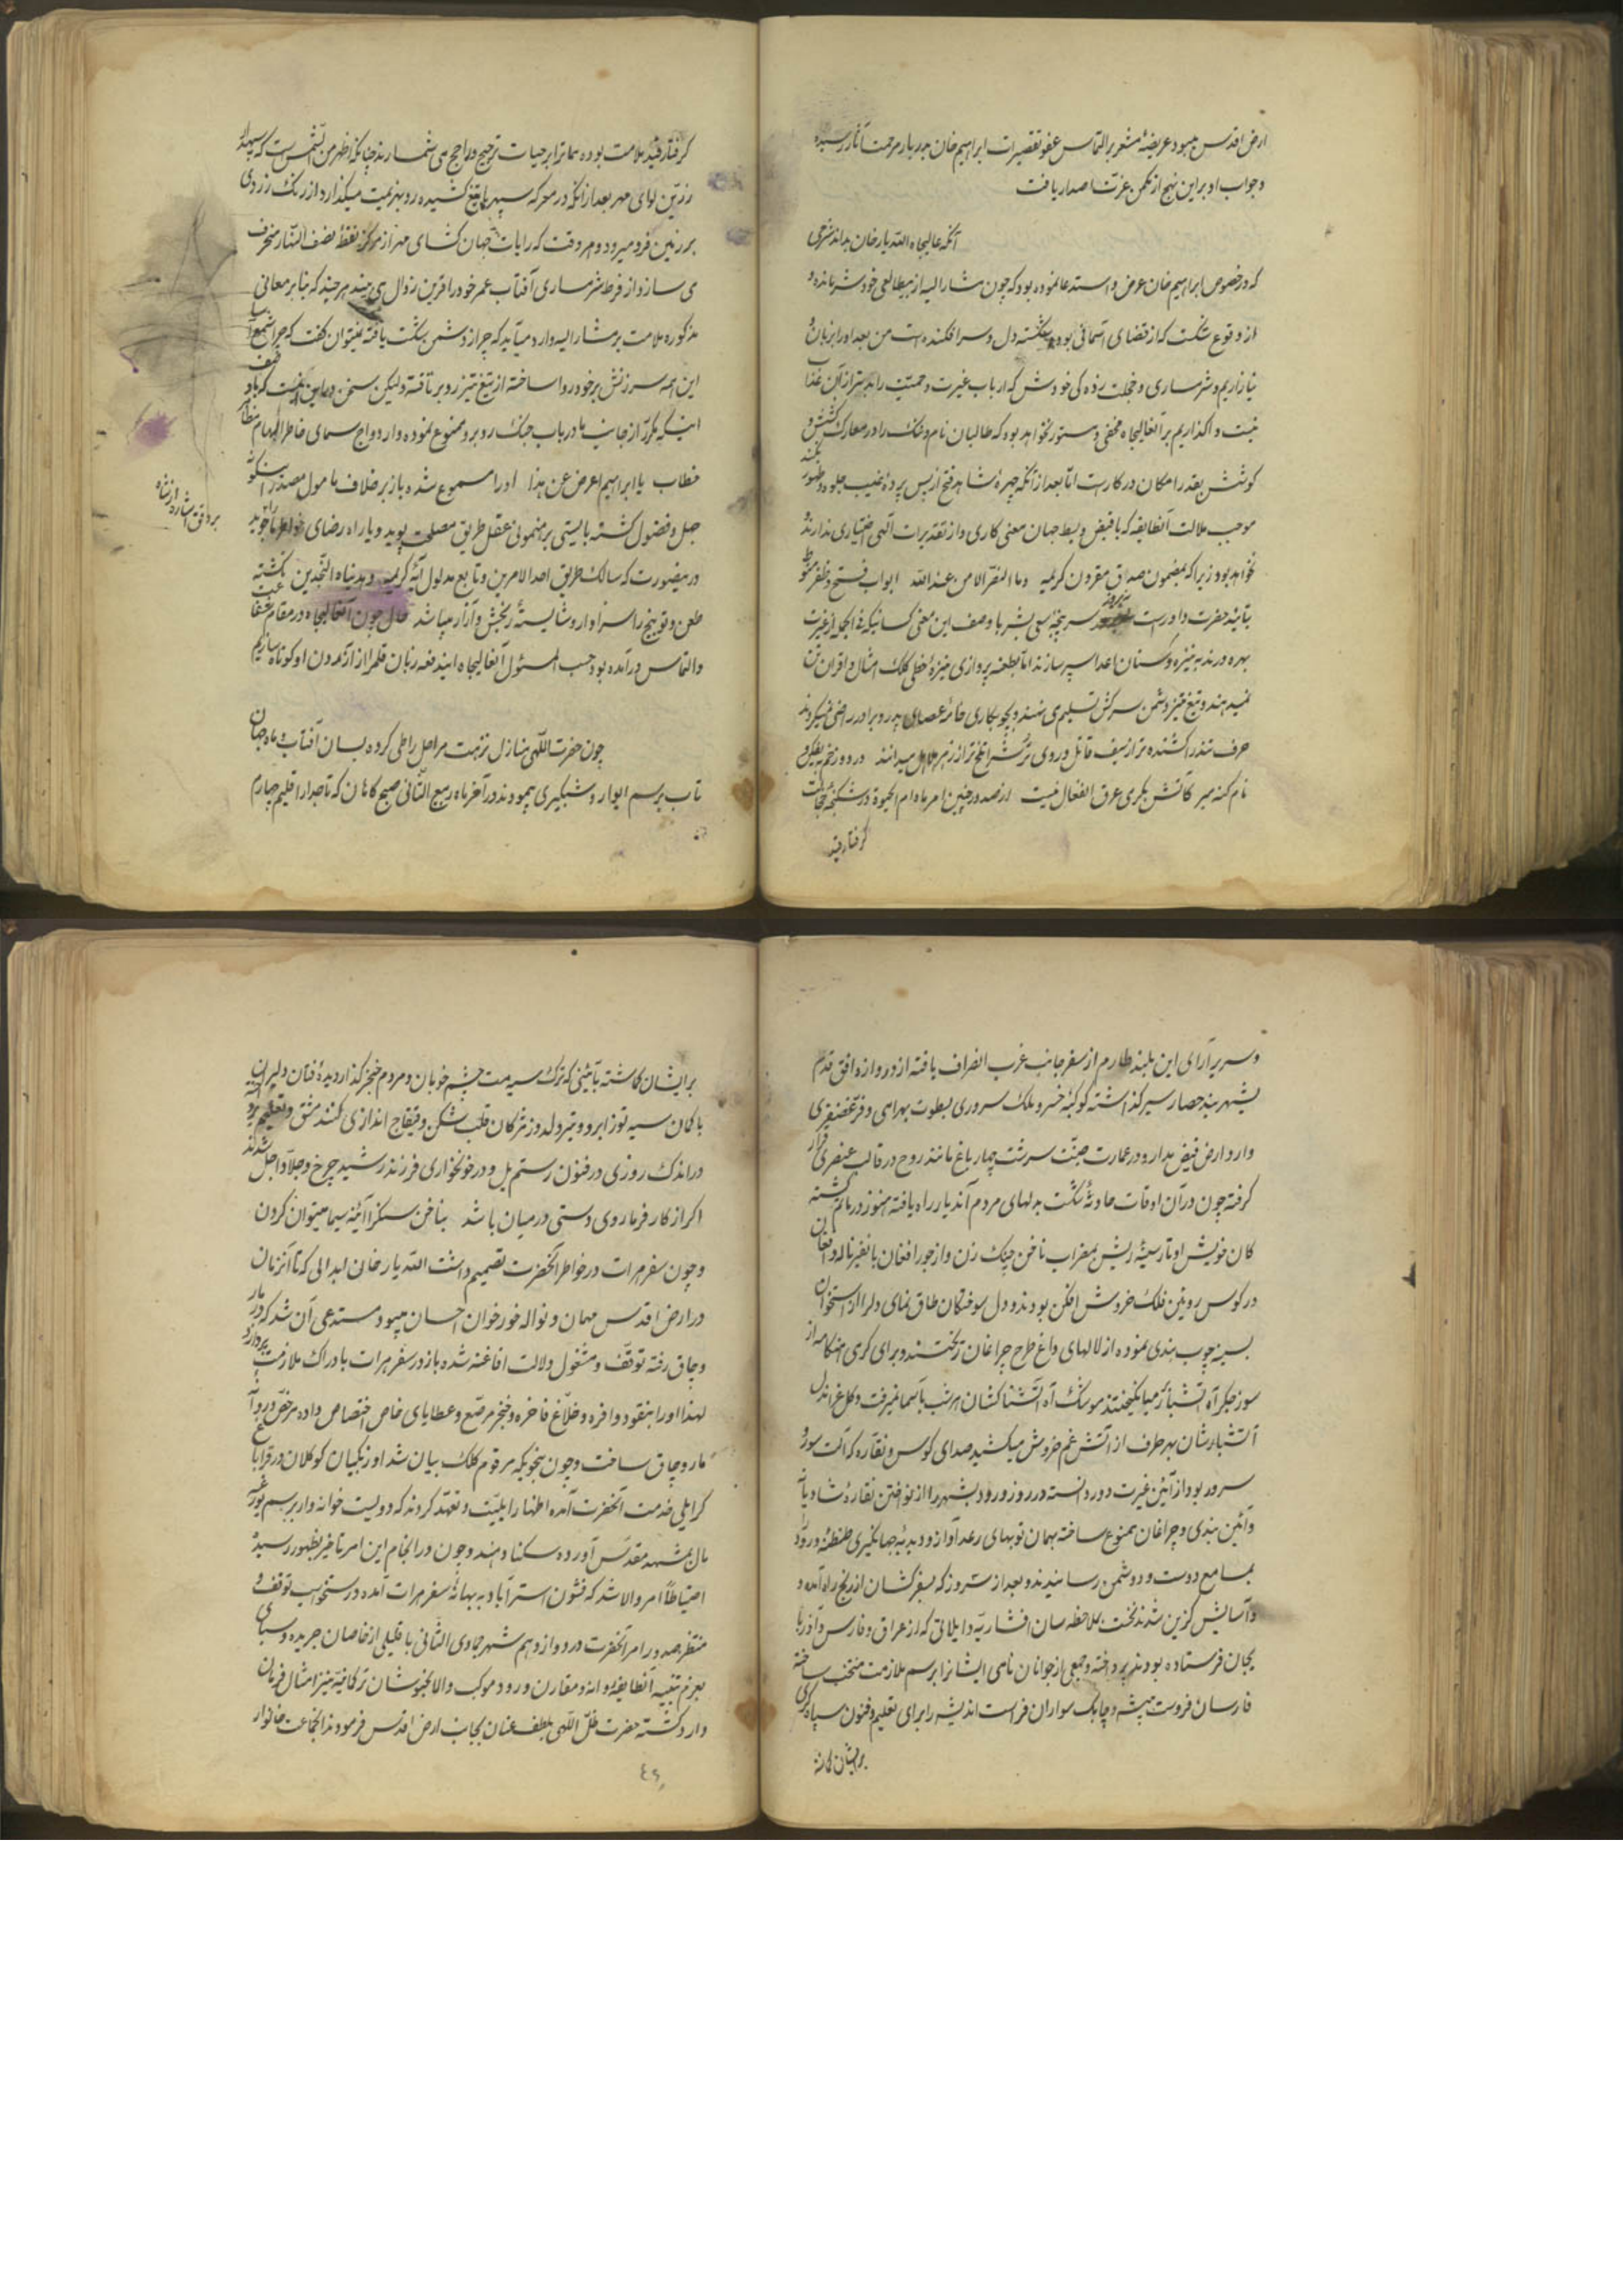 ارض اقدس میبود عریضهٔ مشعر بر التماس عفو تقصیرات ابراهیم خان بدربار مرحمت آثار رسیده
و جواب او براین نهج از مکمن عزت اصدار یافت
آنکه عالیجاه الله یار خان بداند شرحی
که در خصوص ابراهیم خان عرض و استدعا نموده بود که چون مشار الیه از بیطالعی خود شرمنده و
از وقوع شکست که از قضای آسمانی بوده شکسته دل و سرافکنده است من بعد او را بزبان
نیازاریم و شرمساری و خجلت زدگی خودش که ارباب غیرت و حمیت را بدتر از آن عذابی
نیست واگذاریم بر آنعالیجاه مخفی و مستور نخواهد بود که طالبان نام و ننک را در معارک کشش و
کوشش بقدر امکان در کار است اما بعد از آنکه چهرهٔ شاهد فتح از پس پردهٔ غیب جلوه ظهور نکند
موجب ملالت آنطایفه که با قبض و بسط جهان معنی کاری و از تقدیرات الهی اختیاری ندارند
نخواهد بود زیرا که بمضمون صداق مقرون کریمه وما النصر الا من عند الله ابواب فتح و ظفر منوط
بتائید حضرت داور است سرپنجه سعی بشر با وصف این معنی کسانیکه فی الجمله از غیرت
بهره ورند به نیزه و سنان اعدا سپر سازند اما بطعنه پردازی نیزهٔ خطی کلک امثال و اقران تن
نمیدهند و بتیغ تیز دشمن سرکش تسلیم می نهند و بچوبکاری خامه عصای پدر و برادر راضی نمیکردند
حرف تند را کشنده تر از سیف قاتل و روی ترش را تلخ تر از زهر هلاهل میدانند
نام کنه میر کآتش بگرمی عرق انفعال نیست از صدور چنین امر مادام الحیوة در شکنجهٔ خجالت
گرفتار قید
گرفتار قید ملامت بوده ممات را بر حیات ترجیح و راجح می شمارند چنانکه اظهر من الشمس است که سپهدار
زرین لوای مهر بعد از آنکه در معرکه سپهر با تیغ کشیده رو بهزیمت میکذارد از رنک زردی
بر زمین فرو میرود و هر وقت که رایات جهان کشای مهر از مرکز نقطه نصف النهار منحرف
می سازد از فرط شرمساری آفتاب عمر خود را قرین زوال می بیند هر چند که بنابر معانی
مذکوره ملامت بر مشار الیه وارد میآید که چرا از دشمن شکست یافته نمیتوان کفت که چرا
این همه سرزنش بر خود روا ساخته از تیغ تیز رو بر تافته ولیکن سخن در این است که باو
اینکه مکرر از جانب ما در باب جنک روبرو ممنوع نموده وار دواج سمای خاطر الهام مظاهر
خطاب یا ابراهیم اعرض عن هذا او را مسموع شده باز بر خلاف مامول مصدر
جهل و فضول کشته بایستی برهنمونی عقل طریق مصلحت پوید و یا راه رضای خاطر ما جوید
در هر صورت که سالک طریق احد الامرین و تابع مدلول آیهٔ کریمه و هدیناه النجدین نکشته
طعن و توبیخ را سزاوار و شایستهٔ رنجش و آزار میباشد حال چون آنعالیجاه در مقام شفاعت
والتماس درآمده بود حسب المسئول آنعالیجاه ایندفعه زبان قلم را از آزردن او کوتاه سازیم
بر دق اشاره از شاه
چون حضرت ظل اللهی منازل نزهت مراحل را طی کرده بسان آفتاب و ماه جهان
تاب برسم ایوار و شبکیری پیمودند در آخر ماه ربیع الثانی صبح کاهان که تاجدار اقلیم چهارم
و سریرآرای این بلند طارم از سفر جانب غرب انصراف یافته از دروازه افق قدم
بشهر بند حصار سپهر کذاشته کوکبهٔ خسرو ملک سروری بسطوت بهرامی و فر غضنفری
وارد ارض فیض مدار و در عمارت جنت سرشت چهار باغ مانند روح در قالب عنصری قرار
کرفته چون در آن اوقات حادثهٔ شکست بدلهای مردم آندیار راه یافته هنوز در ماتم کشته
کان خویش اوتار سینهٔ ریش بمضراب ناخن چنک زن و از جور افغان با نفیر ناله و افغان
در کوس رویین فلک خروش افکن بودند و دل سوختکان طاق نمای دل را از استخوان
سینه چوب بندی نموده از لالهای داغ طرح چراغان ریختند و برای کرمی هنکامه از
سوز جکر آه آتشبار میانکیختند موشک آه آتشناکشان هر شب باسمان میرفت و کلاغ اندل
آتشبارشان بهر طرف از آتش غم خروش میکشید صدای کوس و نقاره که آلت سور و
سرور بود از آئین غیرت دور دانسته در روز ورود بشهر را از نواختن نقارهٔ شادیانه
و آئین بندی و چراغان ممنوع ساخته بهمان توپهای رعد آواز و دبدبهٔ جهانکیری طنطنهٔ ورود را
بمسامع دوست و دشمن رسانیدند و بعد از سه روز که بفر کشان از رنج راه آمده و
و آسایش کزین شدند نخست بملاحظه سان افشاریه و ایلاتی که از عراق و فارس و آذربا
یجان فرستاده بودند پرداخته و جمعی از جوانان نامی ایشانرا برسم ملازمت منتخب ساخته
فارسان فروست پیشه و چابک سواران فراست اندیشه را برای تعلیم و فنون سپاه کری
بر ایشان کماشته
بر ایشان کماشته تا بینی که ترک سیه مست چشم خوبان و مردم خنجر کذار دیدهٔ فتان دلبران
با کمان سیه توز ابرو و تیر دلدوز مژکان قلب شکن و قیقاج اندازی کنند مشق و تعلیم
در اندک روزی در فنون رستم یل و در خونخواری فرزند رشید چرخ و جلاد اجل شدند
اکر از کار فرما روی دستی در میان باشد بناخن سنکرا آئینه سیما میتوان کردن
و چون سفر هرات در خاطر آنحضرت تصمیم داشت الله یار خان ابدالی که تا آنزمان
در ارض اقدس مهمان و نواله خور خوان احسان میبود مستدعی آن شد که در مار
وچاق رفته توقف و مشغول دلالت افاغنه شده باز در سفر هرات بادراک ملازمت پردازد
لهذا او را بنقود وافره و خلاع فاخره و خنجر مرصع و عطایای خاص اختصاص داده مرخص و روانه
ماروچاق ساخت و چون بنحویکه مرقوم کلک بیان شد اوزبکیان کوکلان در قرابا
کرایلی خدمت آنحضرت آمده اظهار ایلیت و تعهد کردند که دویست خانه وار برسم
مال بمشهد مقدس آورده سکنا دهند و چون در انجام این امر تاخیر بظهور رسیده
احتیاطاً امر والا شد که قشون استراباد به بهانهٔ سفر هرات آمده در سنخواست توقف و
منتظر صدور امر آنحضرت در دوازدهم شهر جمادی الثانی با قلیلی از خاصان جریده و سبای
بعزم تنبیه آنطایفه روانه و مقارن ورود موکب والا بخبوشان ترکمانیه نیز امتثال فرمان
وارد کشته حضرت ظل اللهی بلطف عنان بجانب ارض اقدس فرمودند آنجماعت خانوار